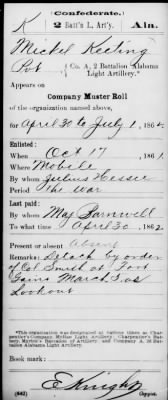 (Confederate.)
K 2 Batt'l L. Art'y. Ala.
Mickel Keeting
Pvt Co. A, 2 Battalion Alabama
Light Artillery.*
Appears on
Company Muster Roll
of the organization named above,
for April 30 to July 1, 1862.
Enlisted:
When Oct 17, 1861.
Where Mobile
By whom Julius Hessee
Period the war
Last paid:
By whom Maj Barnwell
To what time April 30, 1862.
Present or absent Absent
Remarks: Detach by order
of Col. Smith at Fort
Gains March 3, as
Lookout
*This organization was designated at various times as Char-
pentier's Company, Mobile Light Artillery, Charpentier's Bat-
tery, Myrick's Battalion of Artillery; and Company A, 2d Bat-
talion Alabama Light Artillery.
Book mark:
E Knight
(642) Copyist.